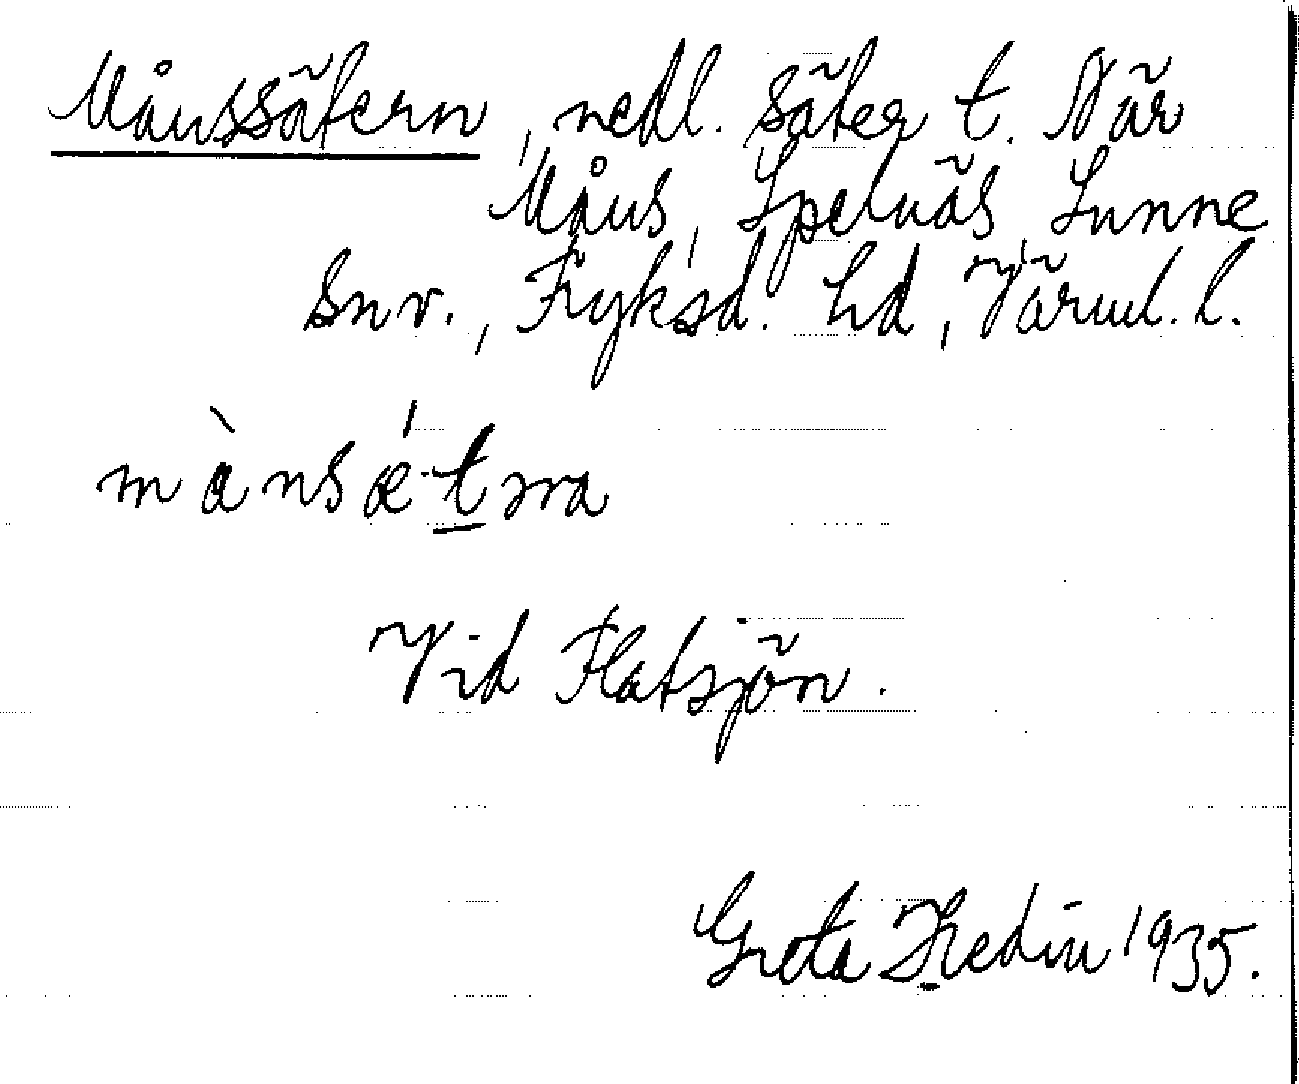 Månssätern, nedl. säter t. När
Måns, Spelnäs, Sunne
snv., Fryksd. hd, Värml. l.
mànsǽ·tɲa
Vid Flatsjön.
Greta Hedin 1935.